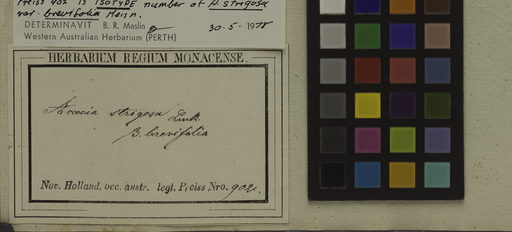 Preiss 902 is ISOTYPE number of A. strigosa
var. brevifolia Meisn.
DETERMINAVIT B. R. Maslin 30·5·1978
Western Australian Herbarium (PERTH)
HERBARIUM REGIUM MONACENSE.
Acacia strigosa Link.
β. brevifolia
Nov. Holland. occ. austr. legt. Preiss Nro. 902.